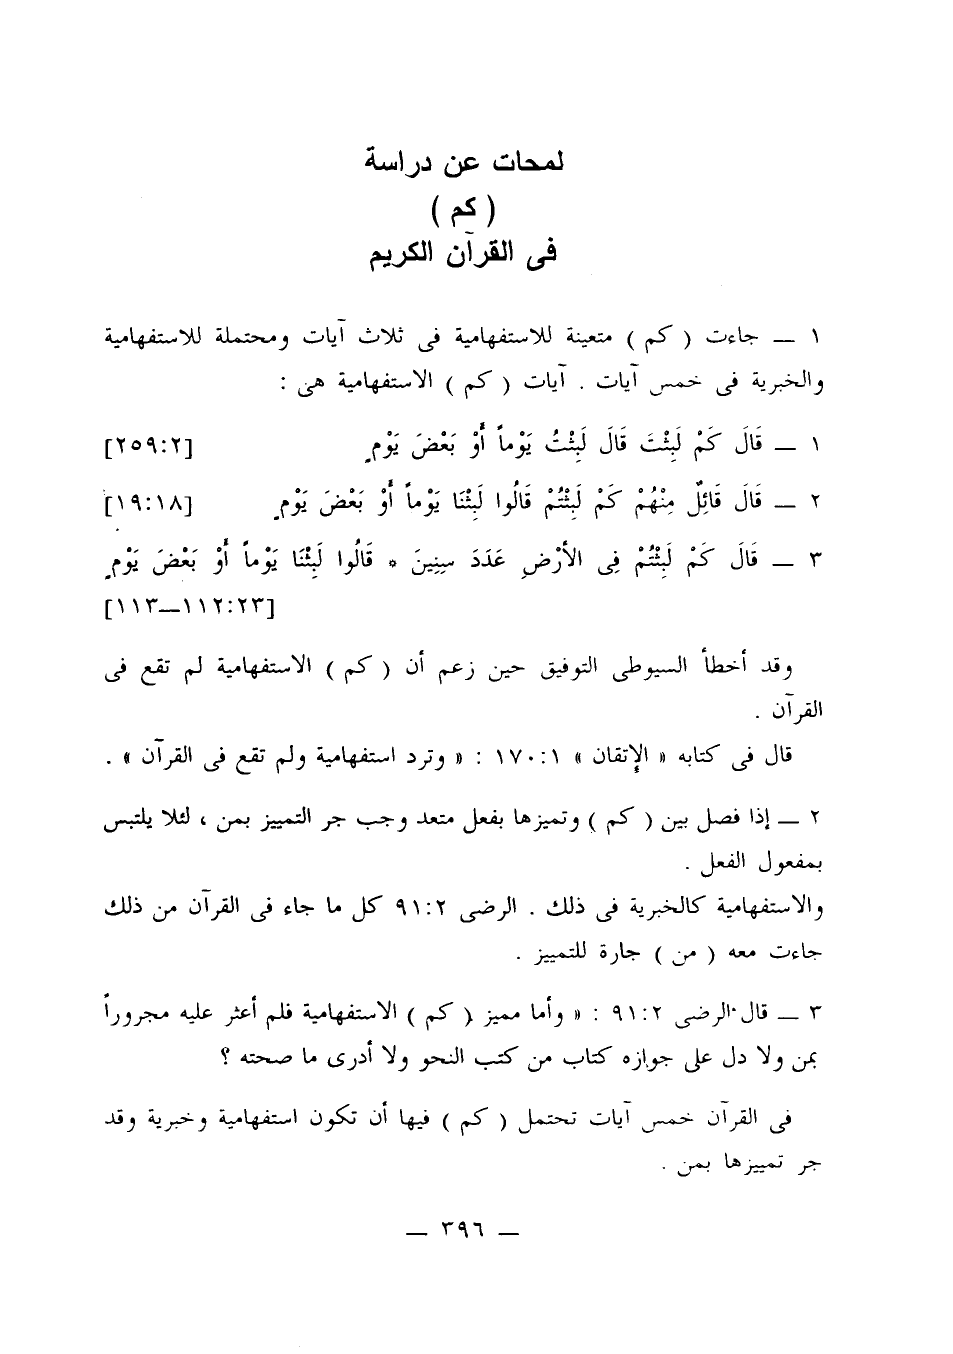 لمحات عن دراسة
( كم )
فى القرآن الكريم
١ — جاءت ( كم ) متعينة للاستفهامية فى ثلاث آيات ومحتملة للاستفهامية
والخبرية فى خمس آيات . آيات ( كم ) الاستفهامية هى :
١ — قَالَ كَمْ لَبِثْتَ قَالَ لَبِثْتُ يَوْماً أَوْ بَعْضَ يَوْمٍ [٢:٢٥٩]
٢ — قَالَ قَائِلٌ مِنْهُمْ كَمْ لَبِثْتُمْ قَالُوا لَبِثْنَا يَوْماً أَوْ بَعْضَ يَوْمٍ [١٨:١٩]
٣ — قَالَ كَمْ لَبِثْتُمْ فِى الأَرْضِ عَدَدَ سِنِينَ * قَالُوا لَبِثْنَا يَوْماً أَوْ بَعْضَ يَوْمٍ
[٢٣:١١٢—١١٣]
وقد أخطأ السيوطى التوفيق حين زعم أن ( كم ) الاستفهامية لم تقع فى
القرآن .
قال فى كتابه « الإتقان » ١:١٧٠ : « وترد استفهامية ولم تقع فى القرآن » .
٢ — إذا فصل بين ( كم ) وتميزها بفعل متعد وجب جر التمييز بمن ، لئلا يلتبس
بمفعول الفعل .
والاستفهامية كالخبرية فى ذلك . الرضى ٢:٩١ كل ما جاء فى القرآن من ذلك
جاءت معه ( من ) جارة للتمييز .
٣ — قال الرضى ٢:٩١ : « وأما مميز ( كم ) الاستفهامية فلم أعثر عليه مجروراً
بمن ولا دل على جوازه كتاب من كتب النحو ولا أدرى ما صحته ؟
فى القرآن خمس آيات تحتمل ( كم ) فيها أن تكون استفهامية وخبرية وقد
جر تمييزها بمن .
— ٣٩٦ —